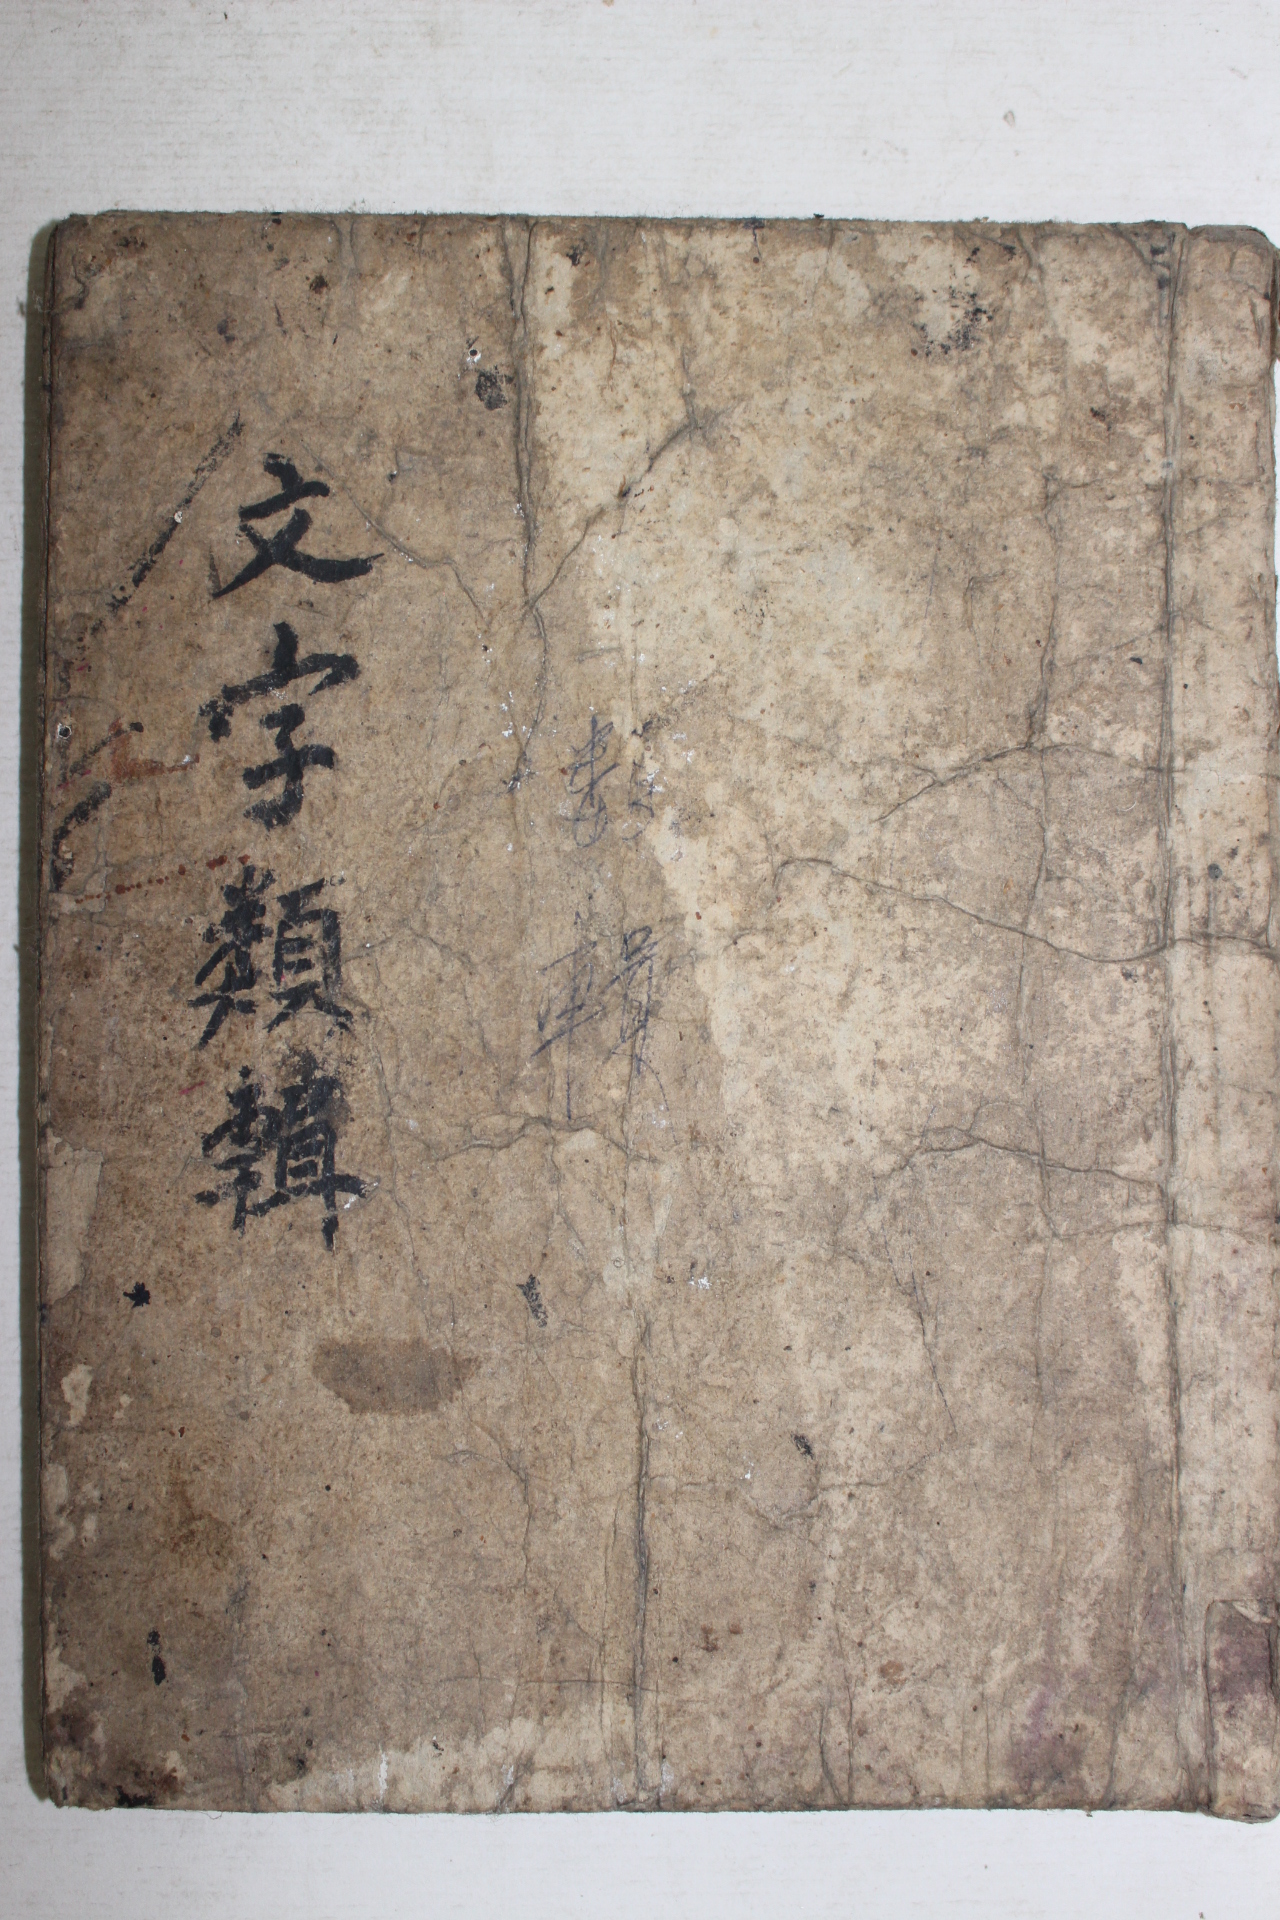 文字類輯